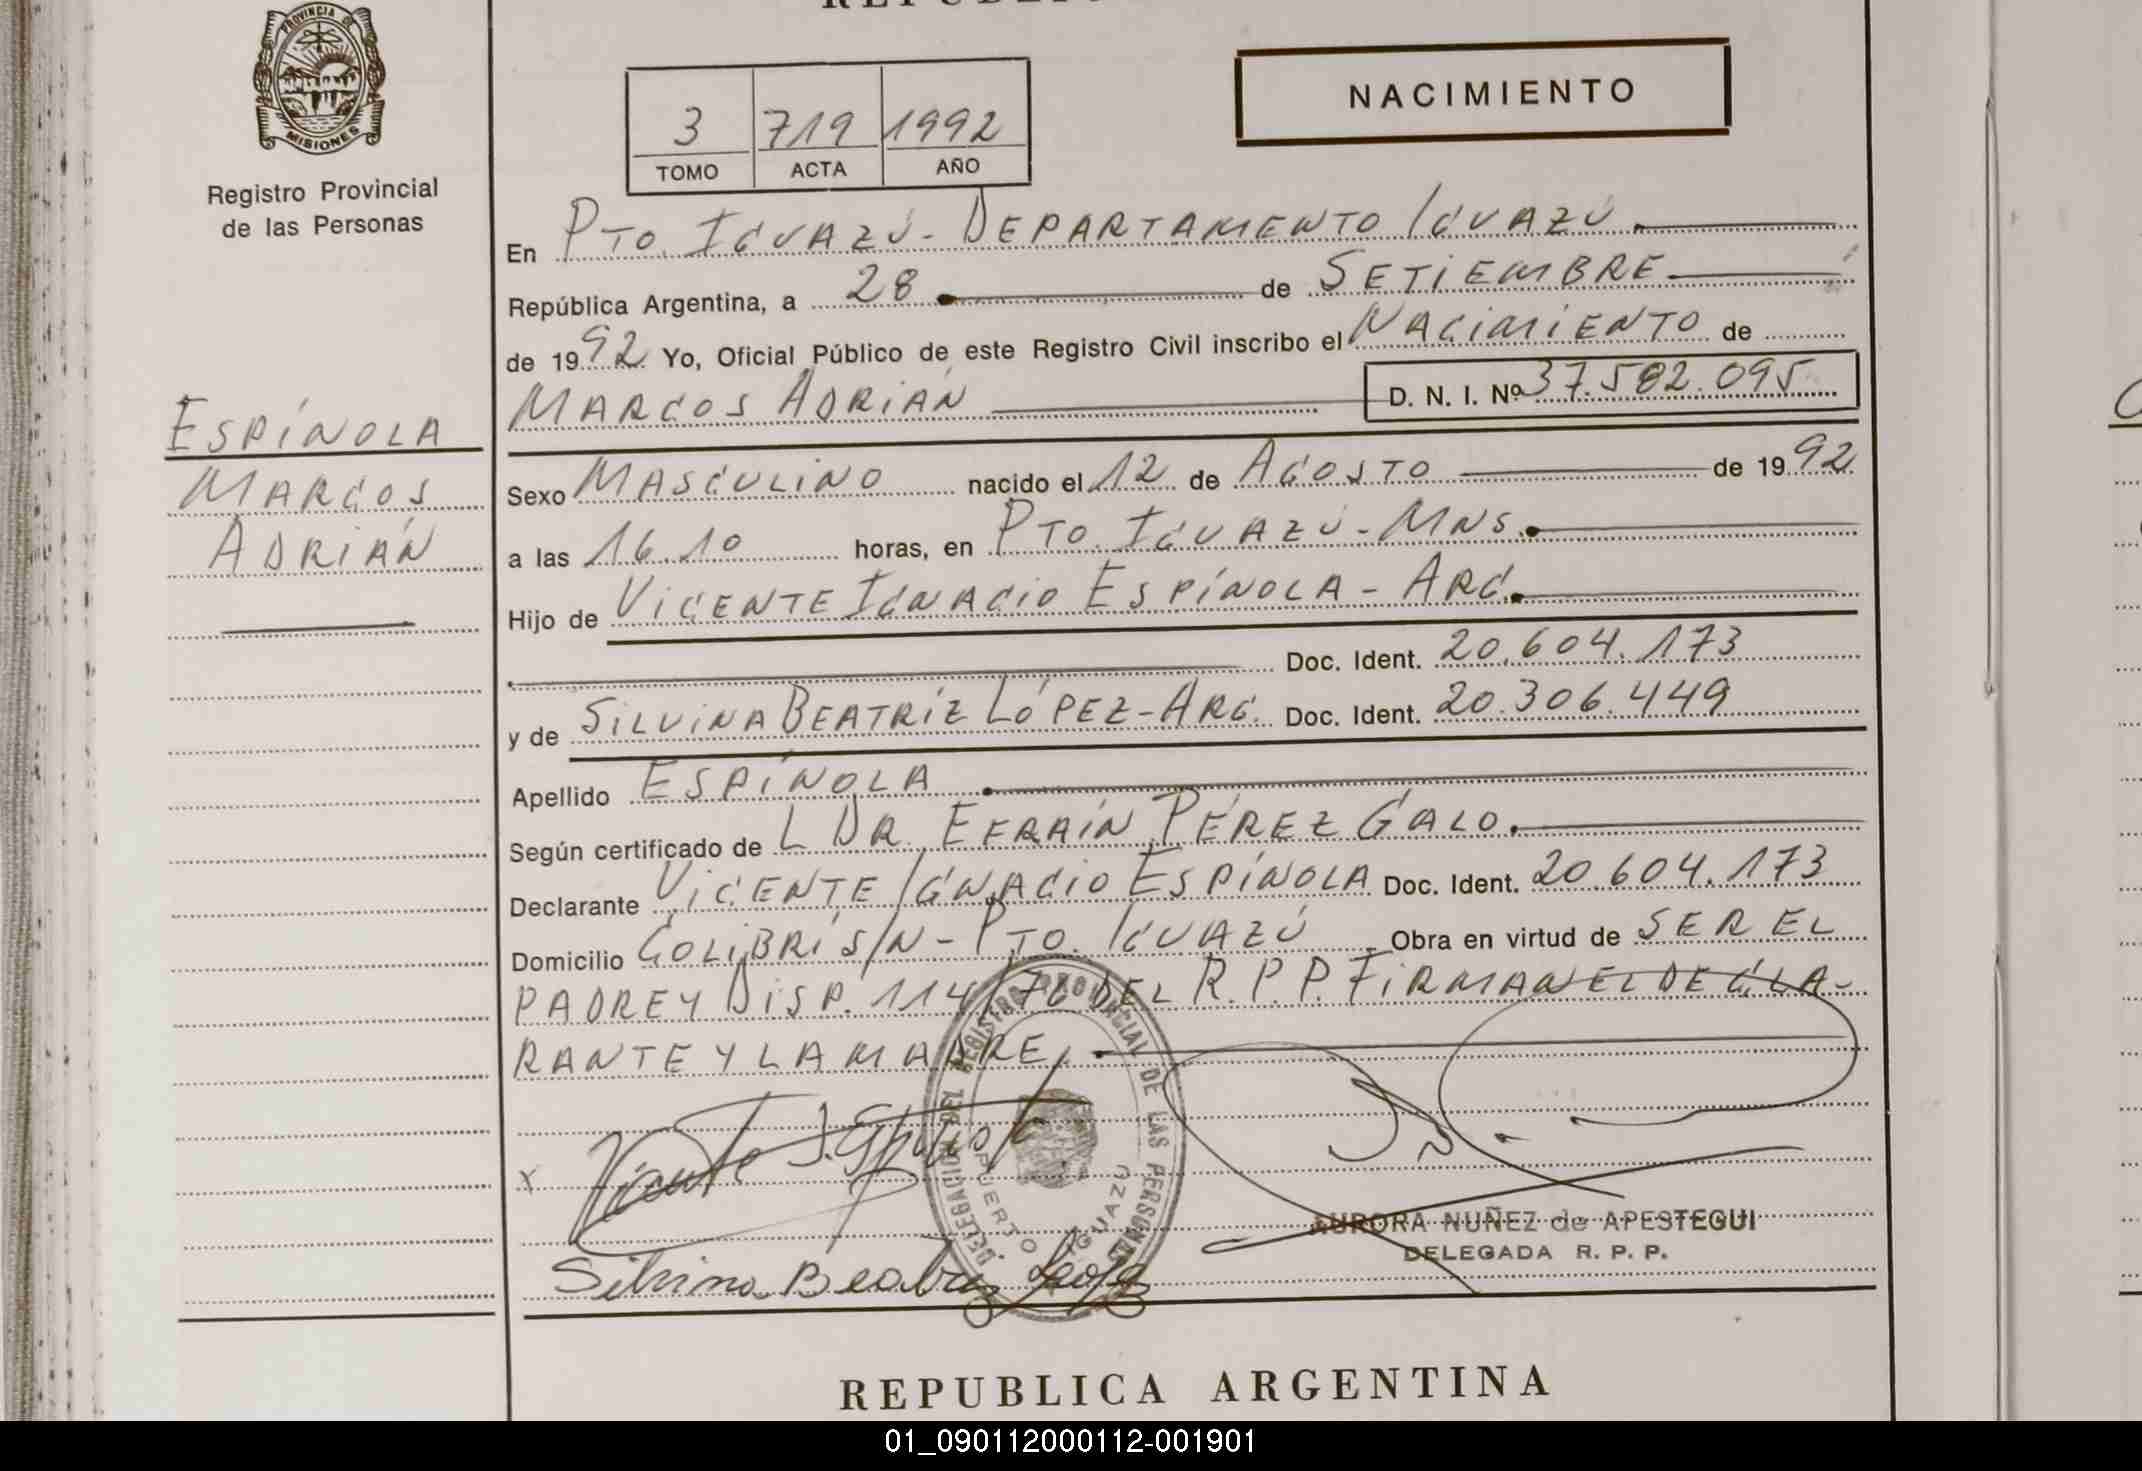 PROVINCIA DE
MISIONES
Registro Provincial
de las Personas
ESPÍNOLA
MARCOS
ADRIÁN
3 719 1992
TOMO ACTA AÑO
NACIMIENTO
En PTO. IGUAZÚ - DEPARTAMENTO IGUAZÚ
República Argentina, a 28 de SETIEMBRE
de 1992 Yo, Oficial Público de este Registro Civil inscribo el NACIMIENTO de
MARCOS ADRIÁN D. N. I. Nº 37.582.095
Sexo MASCULINO nacido el 12 de AGOSTO de 1992
a las 16.10 horas, en PTO. IGUAZÚ - MNS.
Hijo de VICENTE IGNACIO ESPÍNOLA - ARG.
Doc. Ident. 20.604.173
y de SILVINA BEATRÍZ LÓPEZ - ARG. Doc. Ident. 20.306.449
Apellido ESPÍNOLA
Según certificado de L DR. EFRAÍN PÉREZ GALO.
Declarante VICENTE IGNACIO ESPÍNOLA Doc. Ident. 20.604.173
Domicilio COLIBRÍ S/N - PTO. IGUAZÚ Obra en virtud de SER EL
PADRE Y DISP. 114/76 DEL R.P.P. FIRMAN EL DECLA-
RANTE Y LA MADRE.
REGISTRO PROVINCIAL DE LAS PERSONAS
PUERTO IGUAZU
X Vicente I. Espinola
Silvina Beatriz Lopez
AURORA NUÑEZ de APESTEGUI
DELEGADA R. P. P.
REPUBLICA ARGENTINA
01_090112000112-001901